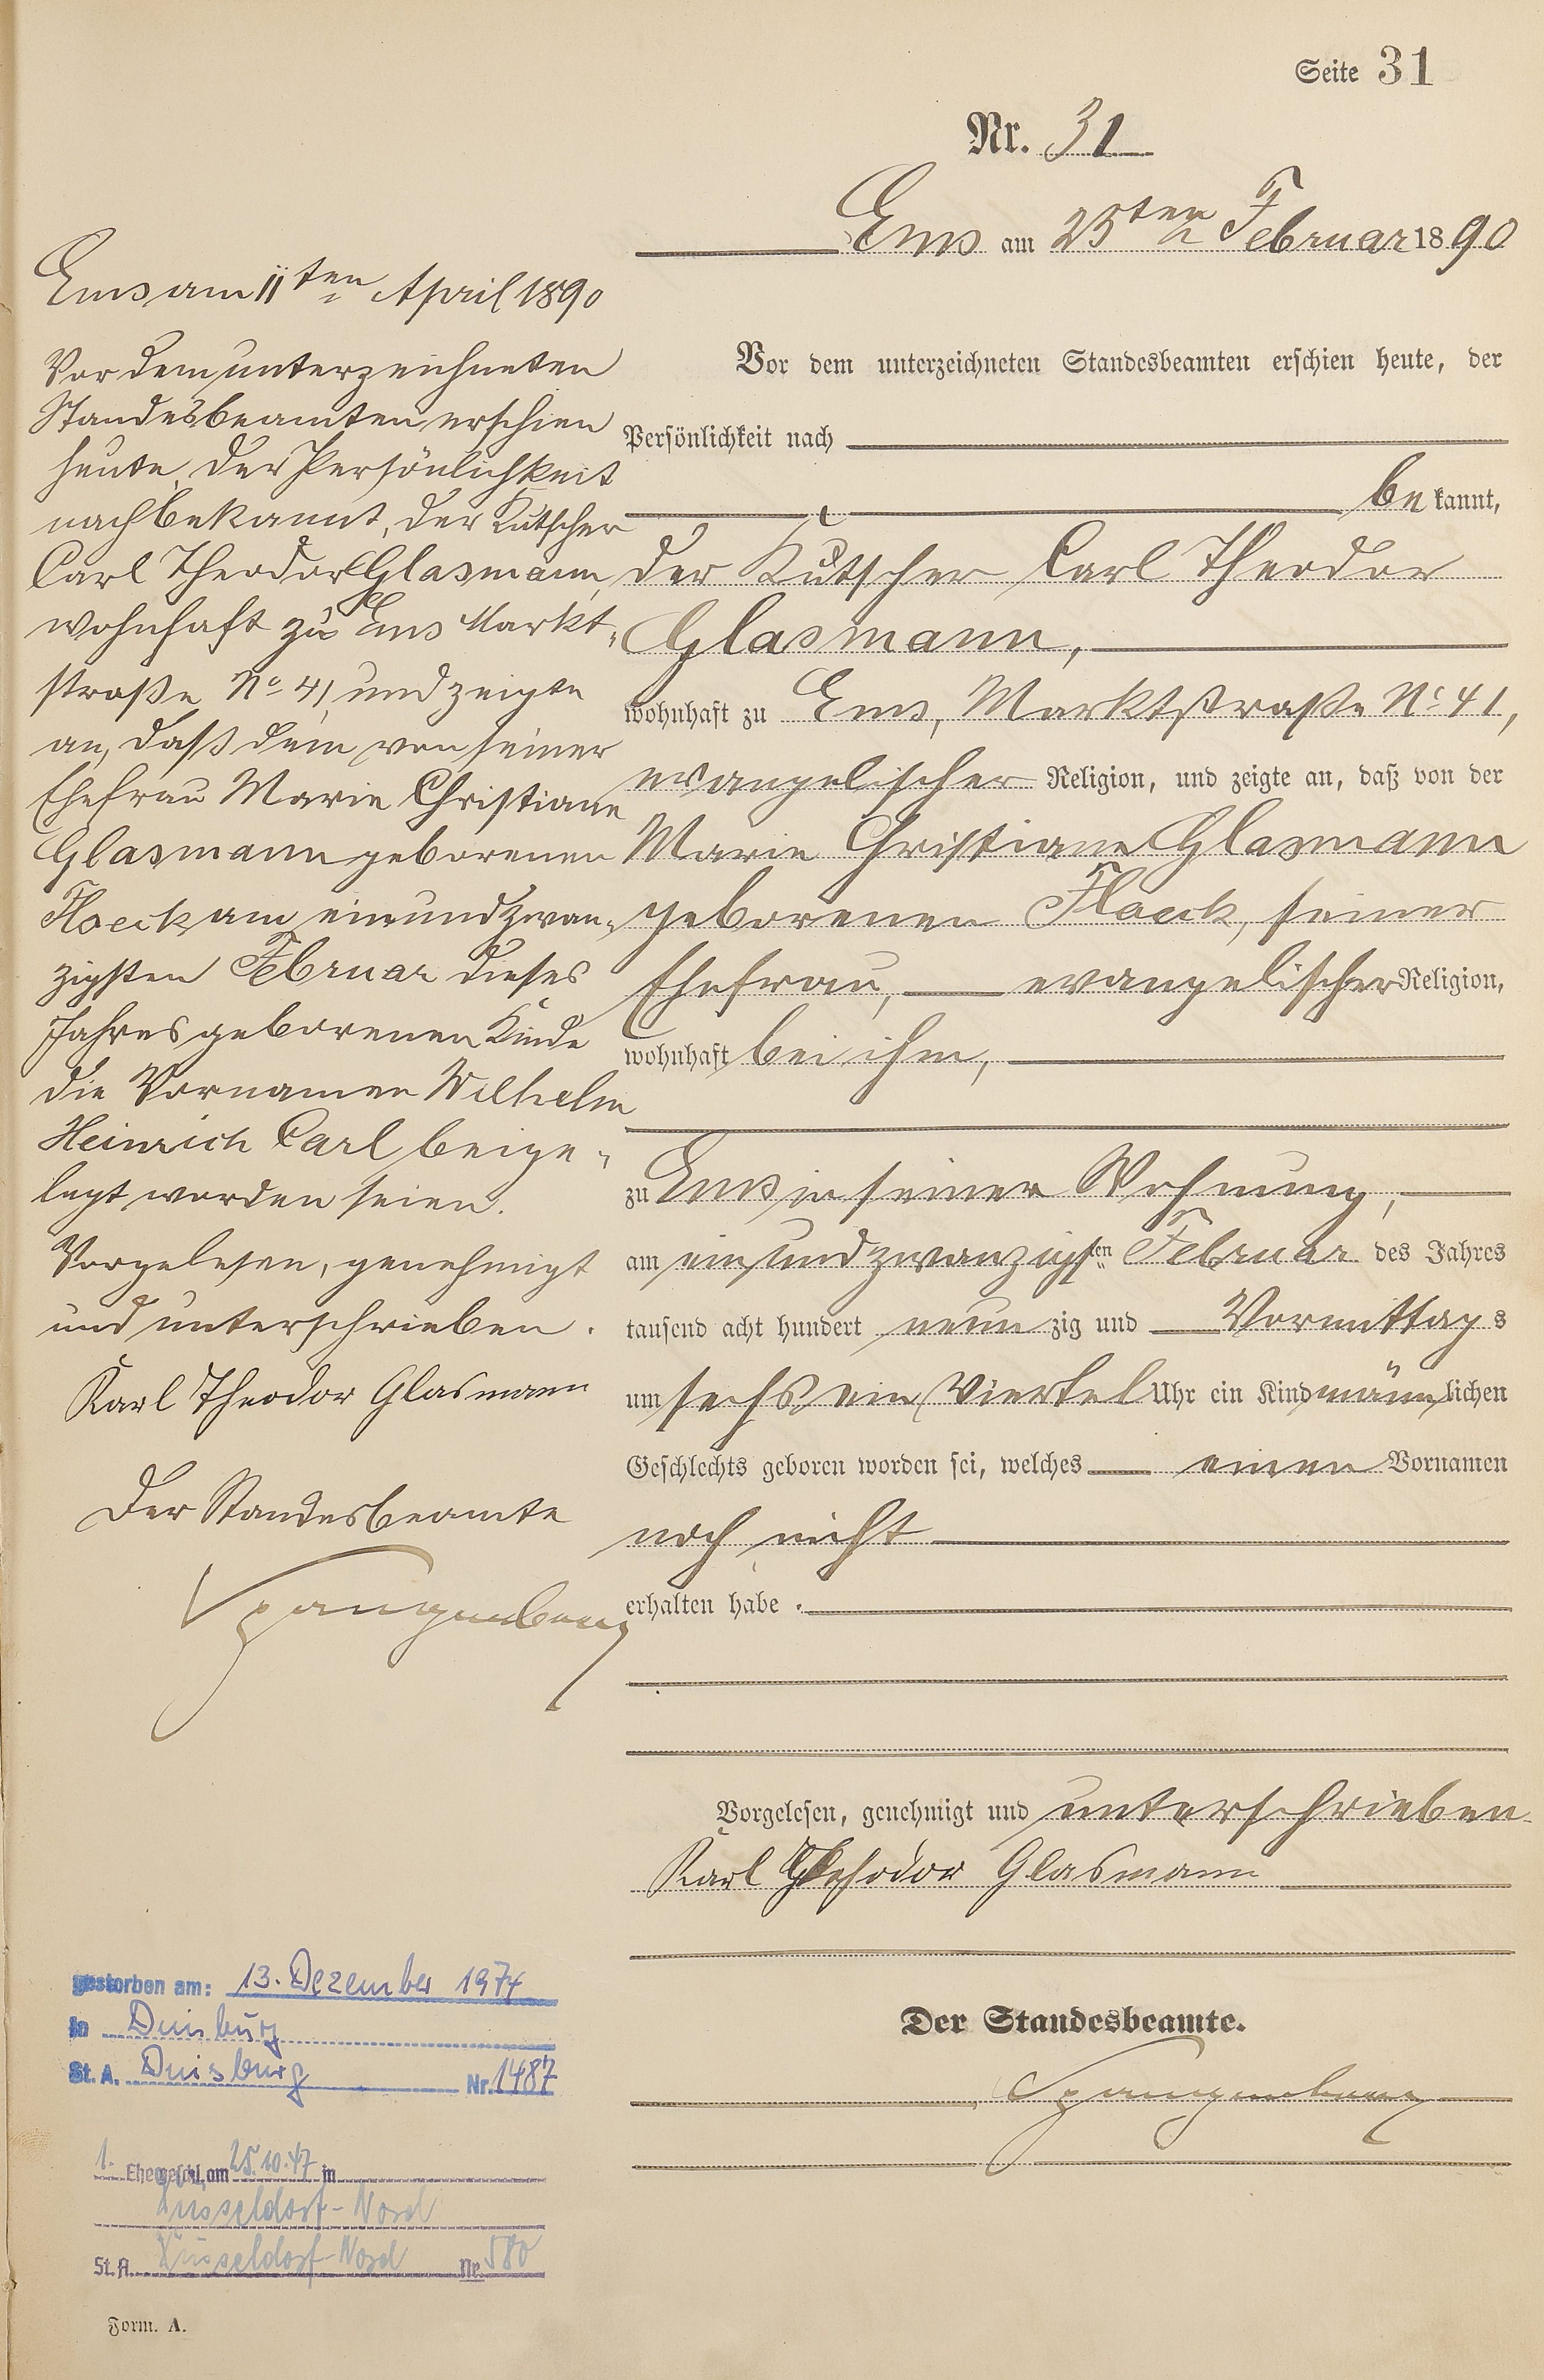 Seite 31
Nr. 31
Ems am 25ten Februar 1890
Vor dem unterzeichneten Standesbeamten erschien heute, der
Persönlichkeit nach
bekannt,
der Kutscher Carl Theodor
Glasmann,
wohnhaft zu Ems, Marktstraße No 41,
evangelischer Religion, und zeigte an, daß von der
Marie Christiane Glasmann
geborenen Floeck, seiner
Ehefrau, evangelischer Religion,
wohnhaft bei ihm,
zu Ems in seiner Wohnung,
am einundzwanzigsten Februar des Jahres
tausend acht hundert neunzig und Vormittags
um sechs ein Viertel Uhr ein Kind männlichen
Geschlechts geboren worden sei, welches einen Vornamen
noch nicht
erhalten habe.
Vorgelesen, genehmigt und unterschrieben
Karl Theodor Glasmann
Der Standesbeamte.
Spangenberg
Ems am 11ten April 1890
Vor dem unterzeichneten
Standesbeamten erschien
heute, der Persönlichkeit
nach bekannt, der Kutscher
Carl Theodor Glasmann,
wohnhaft zu Ems Markt-
straße No 41, und zeigte
an, daß dem von seiner
Ehefrau Marie Christiane
Glasmann geborenen
Floeck am einundzwan-
zigsten Februar dieses
Jahres geborenen Kinde
die Vornamen Wilhelm
Heinrich Carl beige-
legt worden seien.
Vorgelesen, genehmigt
und unterschrieben.
Karl Theodor Glasmann
Der Standesbeamte
Spangenberg
gestorben am: 13. Dezember 1974
in Duisburg
St. A. Duisburg Nr. 1487
1. Eheschl. am 25.10.47 in
Düsseldorf-Nord
St. A. Düsseldorf-Nord Nr. 580
Form. A.